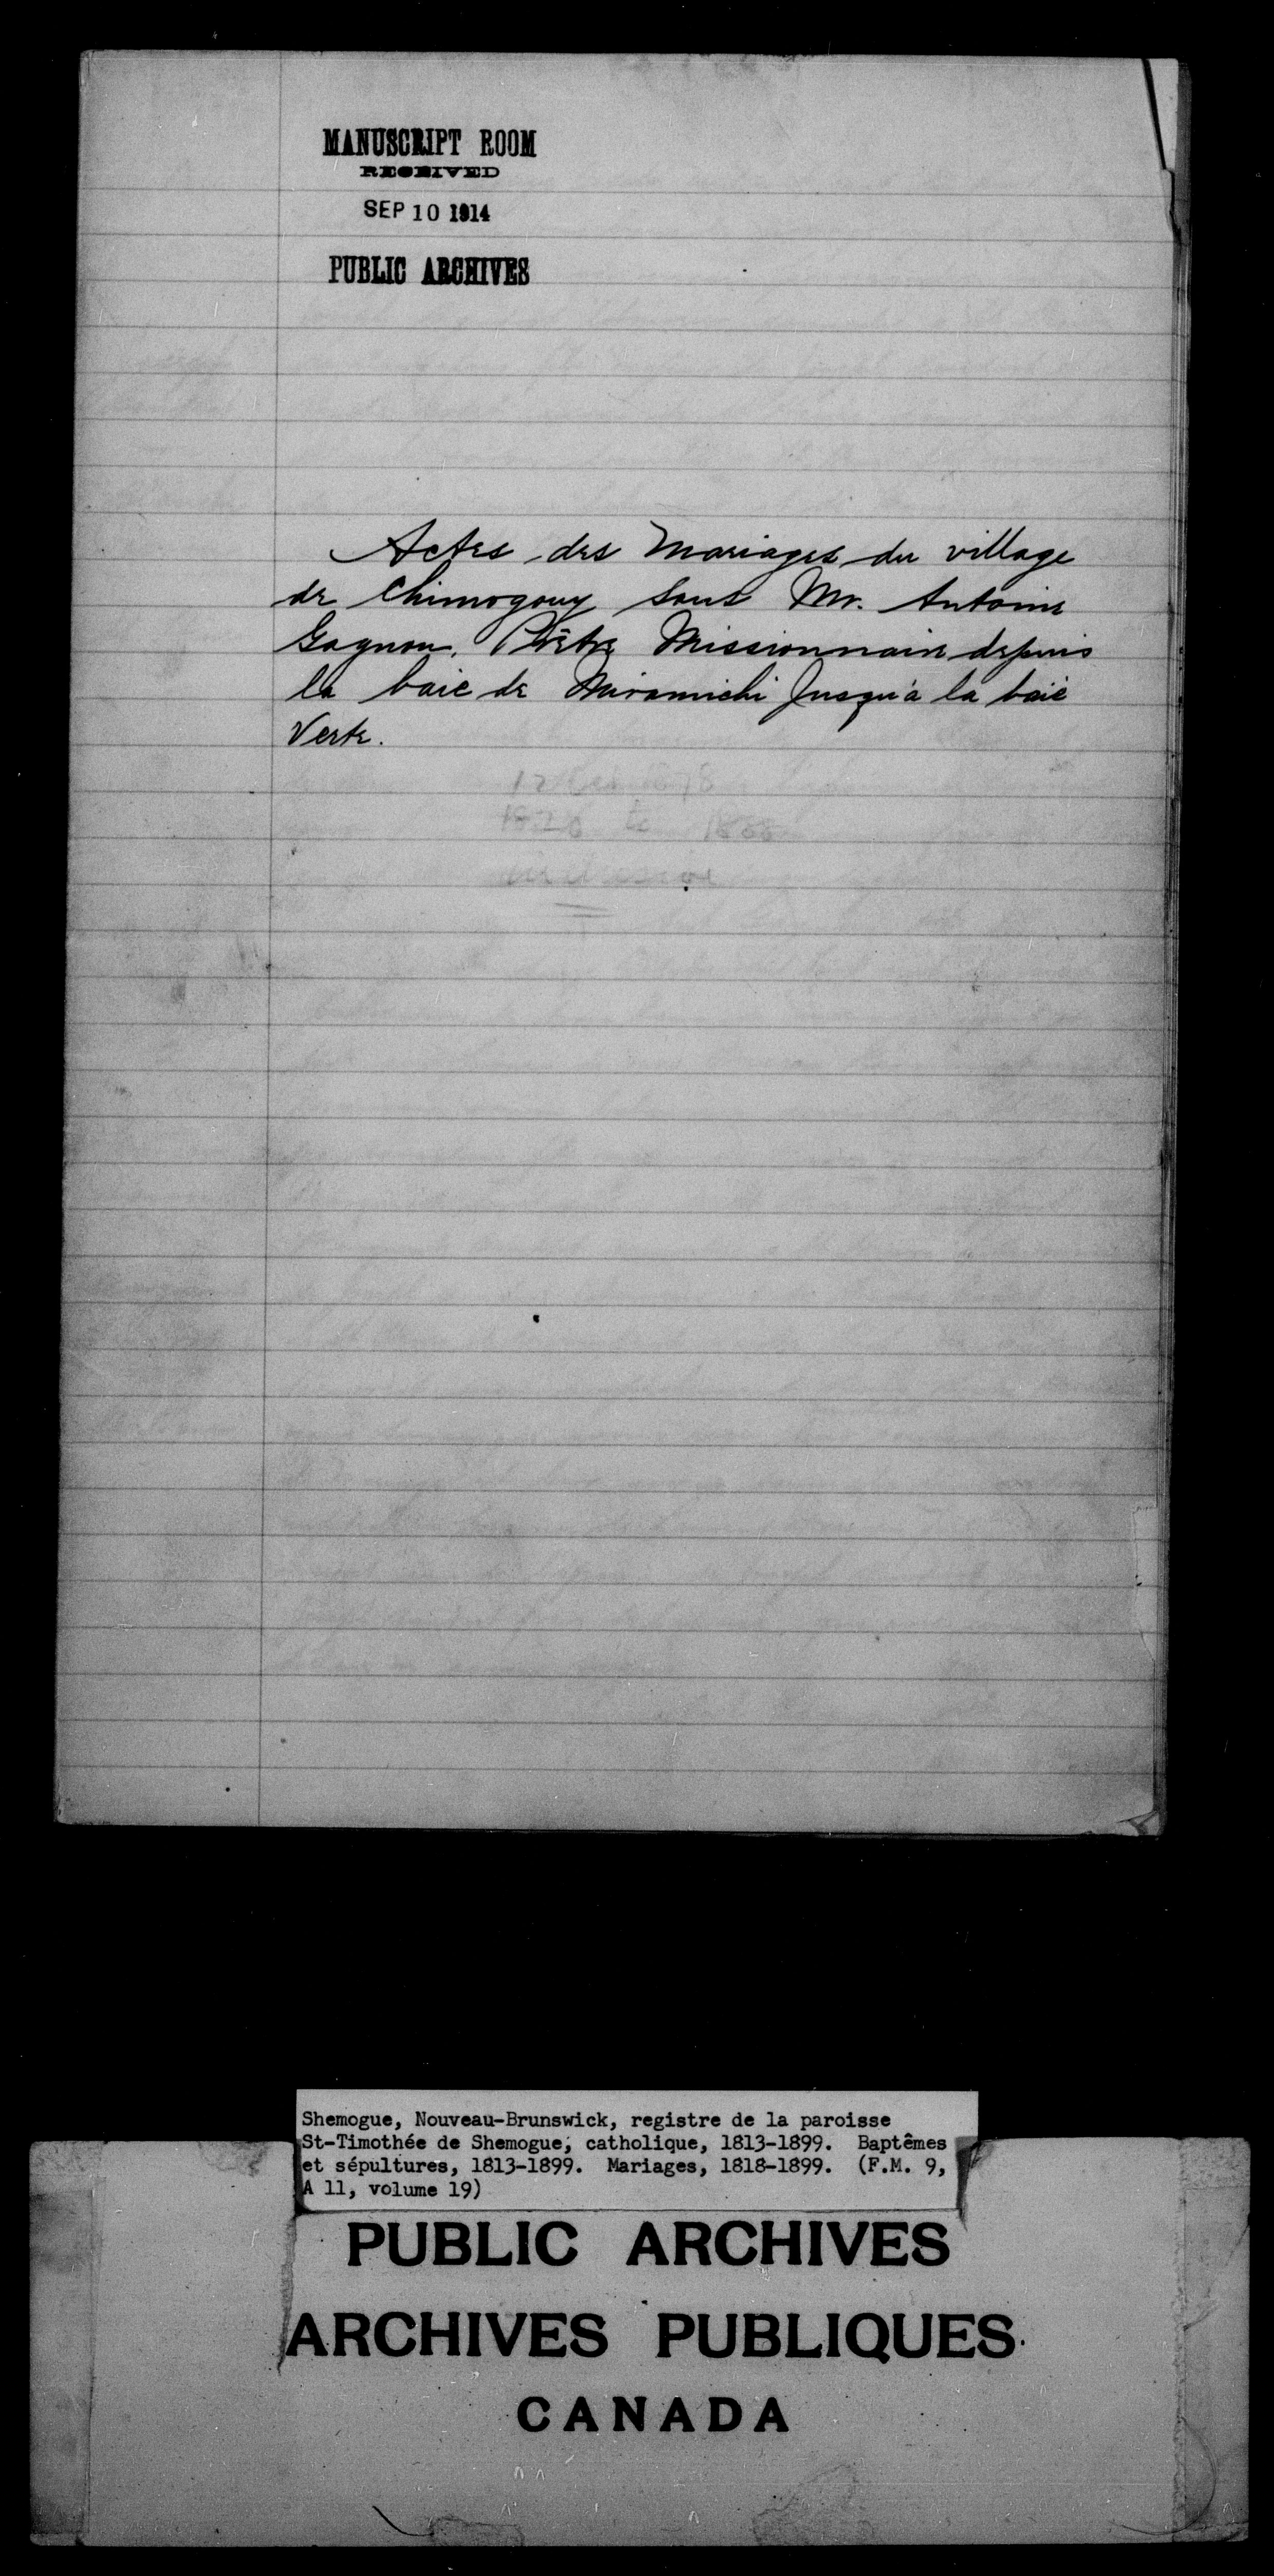 MANUSCRIPT ROOM
RECEIVED
SEP 10 1914
PUBLIC ARCHIVES
Actes des Mariages du village
de Chimogouy sous Mr. Antoine
Gagnon. Prêtre Missionnaire depuis
la baie de Miramichi Jusqu'à la baie
Verte.
Shemogue, Nouveau-Brunswick, registre de la paroisse
St-Timothée de Shemogue, catholique, 1813-1899. Baptêmes
et sépultures, 1813-1899. Mariages, 1818-1899. (F.M. 9,
A 11, volume 19)
PUBLIC ARCHIVES
ARCHIVES PUBLIQUES
CANADA